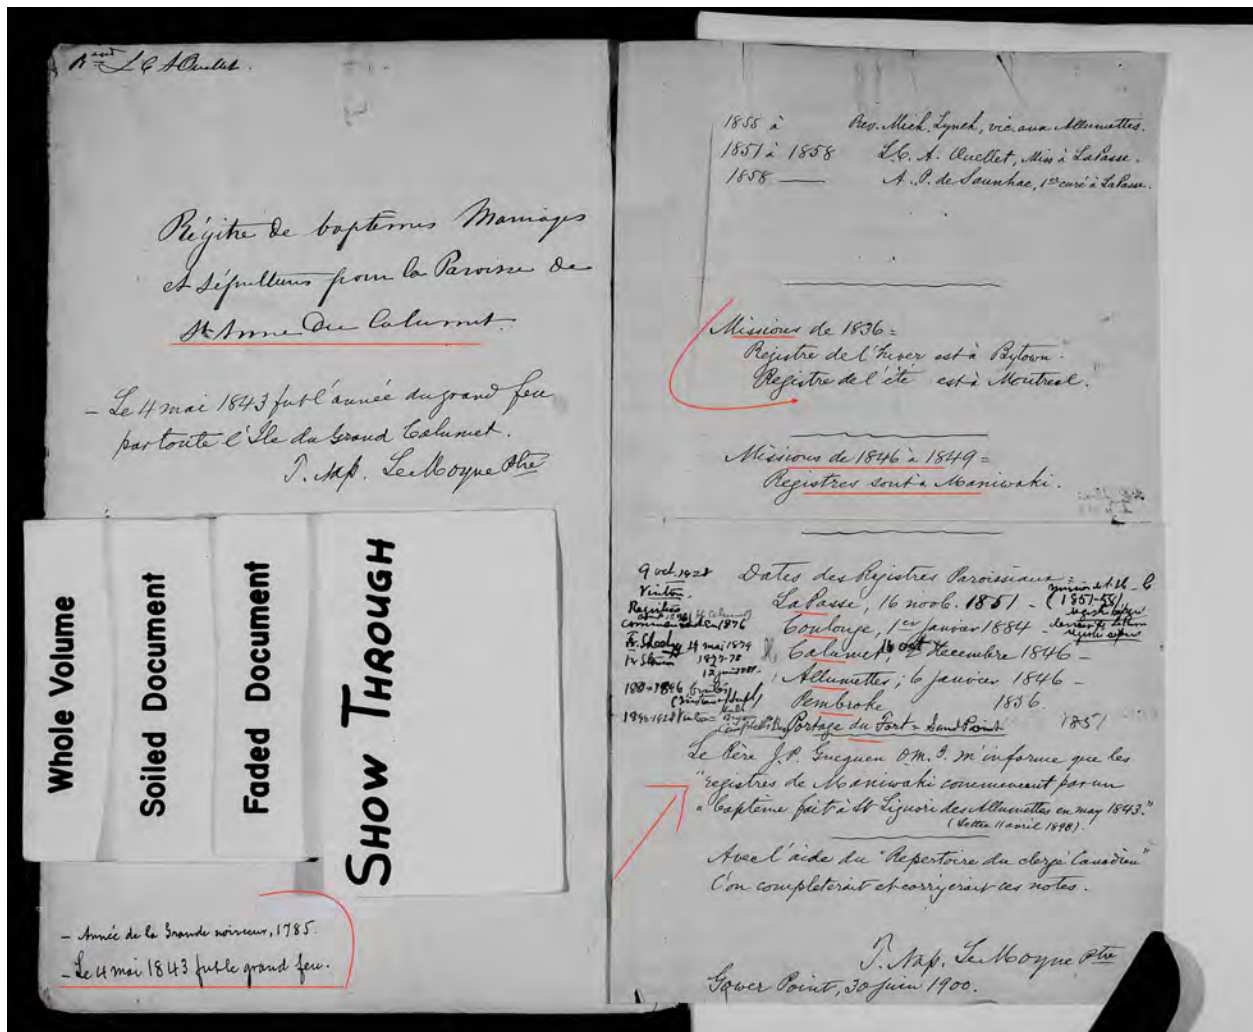 L C A Ouellet.
Régitre de baptemes Mariages
et Sépultures pour la Paroisse de
Ste Anne Du Calumet.
- Le 4 mai 1843 fut l'année du grand feu
par toute l'Ile du Grand Calumet.
T. Nap. LeMoyne Ptre
Whole Volume
Soiled Document
Faded Document
SHOW THROUGH
- Année de la Grande noirceur, 1785.
- Le 4 mai 1843 fut le grand feu.
1855 à Rev. Mich. Lynch, vic. aux Allumettes.
1851 à 1858 L.C. A. Ouellet, Miss à LaPasse.
1858 — A. P. de Saunhac, 1er curé à LaPasse.
Missions de 1836 =
Registre de l'hiver est à Bytown.
Registre de l'été est à Montreal.
Missions de 1846 à 1849 =
Registres sont à Maniwaki.
Dates des Registres Paroissiaux =
LaPasse, 16 novb. 1851 - (1851-58)
Coulonge, 1er Janvier 1884 -
Calumet, 2 decembre 1846 -
Allumettes, 6 janvier 1846 -
Pembroke 1836.
Portage du Fort = Sand Point 1851
9 oct. 1928
Vinton
Registres
commencent en 1876
Fr. Sheehy 14 mai 1879
1877-78
Le Père J.P. Gueguen O.M.I. m'informe que les
"registres de Maniwaki commencent par un
"baptême fait à St Liguori des Allumettes en may 1843."
(Lettre 11 avril 1898).
Avec l'aide du "Repertoire du clergé Canadien"
l'on completerait et corrigerait ces notes.
T. Nap. LeMoyne Ptre
Gower Point, 30 juin 1900.